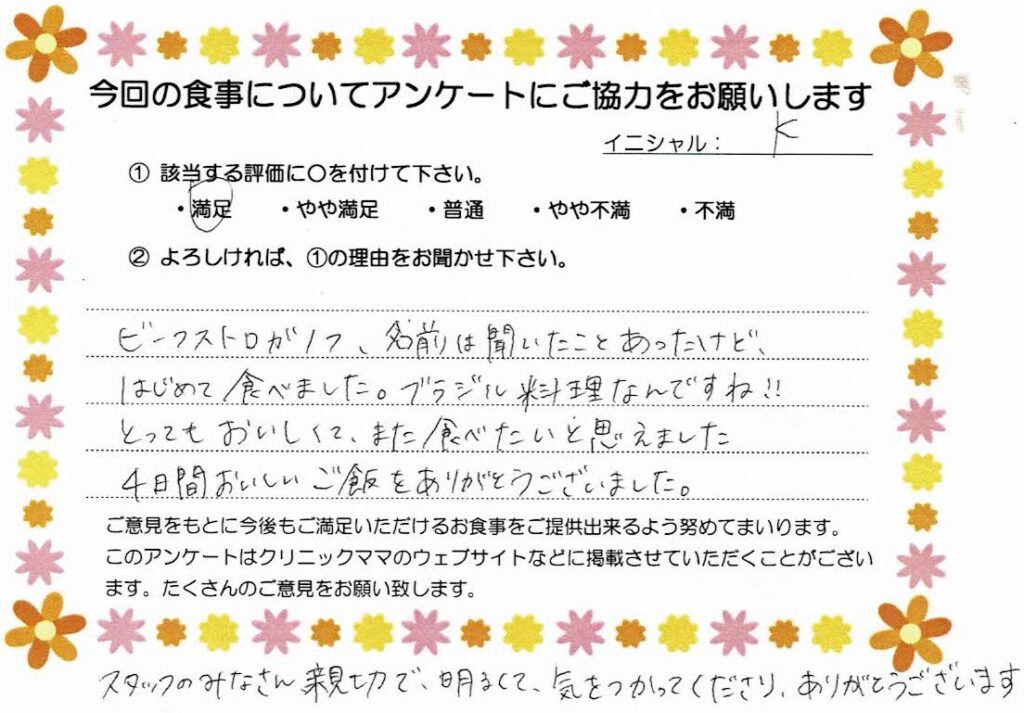 今回の食事についてアンケートにご協力をお願いします
イニシャル： K
① 該当する評価に〇を付けて下さい。
・満足 ・やや満足 ・普通 ・やや不満 ・不満
② よろしければ、①の理由をお聞かせ下さい。
ビーフストロガノフ、名前は聞いたことあったけど、
はじめて食べました。ブラジル料理なんですね!!
とってもおいしくて、また食べたいと思えました
4日間おいしいご飯をありがとうございました。
ご意見をもとに今後もご満足いただけるお食事をご提供出来るよう努めてまいります。
このアンケートはクリニックママのウェブサイトなどに掲載させていただくことがござい
ます。たくさんのご意見をお願い致します。
スタッフのみなさん親切で、明るくて、気をつかってくださり、ありがとうございます